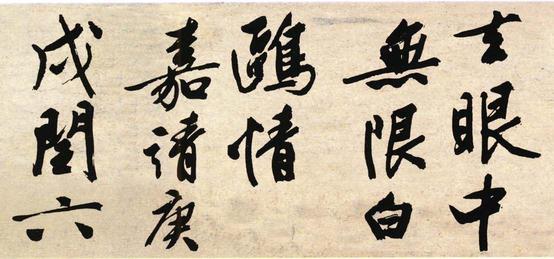 去眼中
無限白
鷗情
嘉靖庚
戌閏六